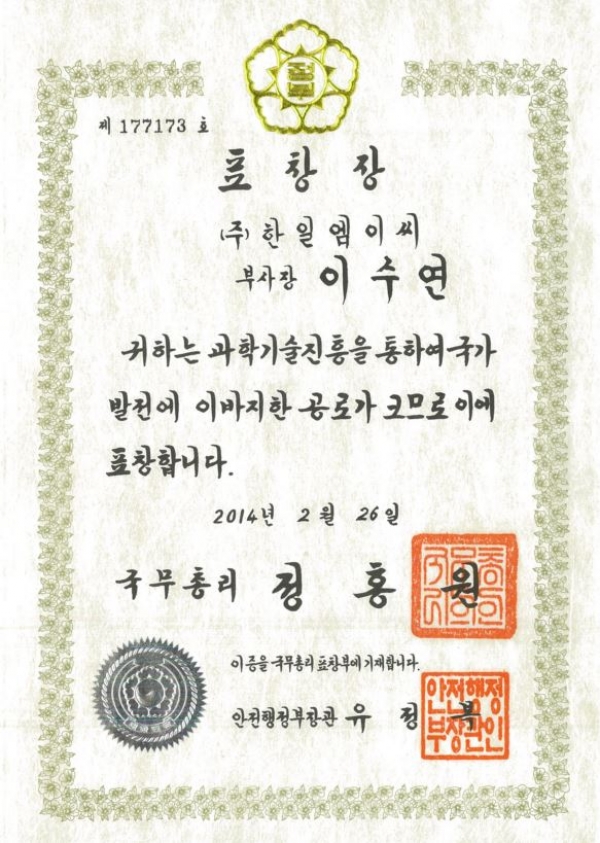 제 177173 호
표창장
(주) 한일엠이씨
부사장 이수연
귀하는 과학기술진흥을 통하여 국가
발전에 이바지한 공로가 크므로 이에
표창합니다.
2014년 2월 26일
국무총리 정홍원
이 증을 국무총리 표창부에 기재합니다.
안전행정부장관 유정복
안전행정
부장관인